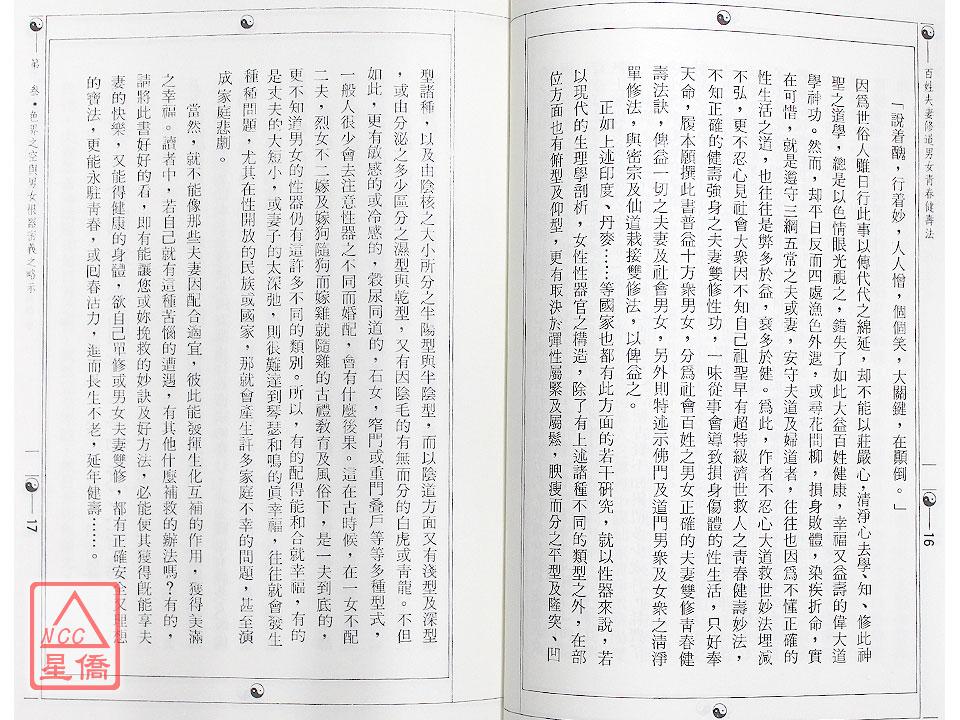 百姓夫妻修道男女青春健壽法
16
「說着醜，行着妙，人人憎，個個笑，大關鍵，在顛倒。」
因爲世俗人雖日行此事以傳代代之綿延，却不能以莊嚴心，清淨心去學、知、修此神
聖之道學，總是以色情眼光視之，錯失了如此大益百姓健康，幸福又益壽的偉大道
學神功。然而，却平日反而四處漁色外遇，或尋花問柳，損身敗體，染疾折命，實
在可惜，就是遵守三綱五常之夫或妻，安守夫道及婦道者，往往也因爲不懂正確的
性生活之道，也往往是弊多於益，衰多於健。爲此，作者不忍心大道救世妙法埋減
不弘，更不忍心見社會大衆因不知自己祖聖早有超特級濟世救人之青春健壽妙法，
不知正確的健壽強身之夫妻雙修性功，一味從事會導致損身傷體的性生活，只好奉
天命，履本願撰此書普益十方衆男女，分爲社會百姓之男女正確的夫妻雙修青春健
壽法訣，俾益一切之夫妻及社會男女，另外則特述示佛門及道門男衆及女衆之清淨
單修法，與密宗及仙道栽接雙修法，以俾益之。
正如上述印度、丹麥……等國家也都有此方面的若干研究，就以性器來說，若
以現代的生理學剖析，女性性器官之構造，除了有上述諸種不同的類型之外，在部
位方面也有俯型及仰型，更有取決於彈性屬緊及屬鬆，腴瘦而分之平型及隆突、凹
型諸種，以及由陰核之大小所分之半陽型與半陰型，而以陰道方面又有淺型及深型
，或由分泌之多少區分之濕型與乾型，又有因陰毛的有無而分的白虎或青龍。不但
如此，更有敏感的或冷感的，穀尿同道的，石女，窄門或重門疊戶等等多種型式，
一般人很少會去注意性器之不同而婚配，會有什麼後果。這在古時候，在一女不配
二夫，烈女不二嫁及嫁狗隨狗而嫁雞就隨雞的古禮敎育及風俗下，是一夫到底的，
更不知道男女的性器仍有這許多不同的類別。所以，有的配得能和合就幸福，有的
是丈夫的大短小，或妻子的太深弛，則很難達到琴瑟和鳴的眞幸福，往往就會發生
種種問題，尤其在性開放的民族或國家，那就會產生許多家庭不幸的問題，甚至演
成家庭悲劇。
當然，就不能像那些夫妻因配合適宜，彼此能發揮生化互補的作用，獲得美滿
之幸福。讀者中，若自己就有這種苦惱的遭遇，有其他什麼補救的辦法嗎？有的，
請將此書好好的看，即有能讓您或妳挽救的妙訣及好方法，必能使其獲得旣能享夫
妻的快樂，又能得健康的身體，欲自己單修或男女夫妻雙修，都有正確安全又理想
的寶法，更能永駐青春，或回春沾力，進而長生不老，延年健壽……。
第 叁・色界之空與男女根器
17
NCC
星僑